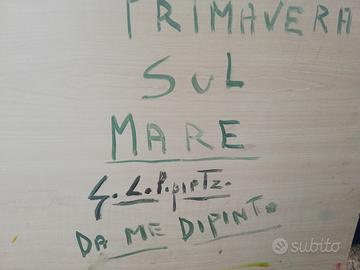 PRIMAVERA
SUL
MARE
DA ME DIPINTO
subito